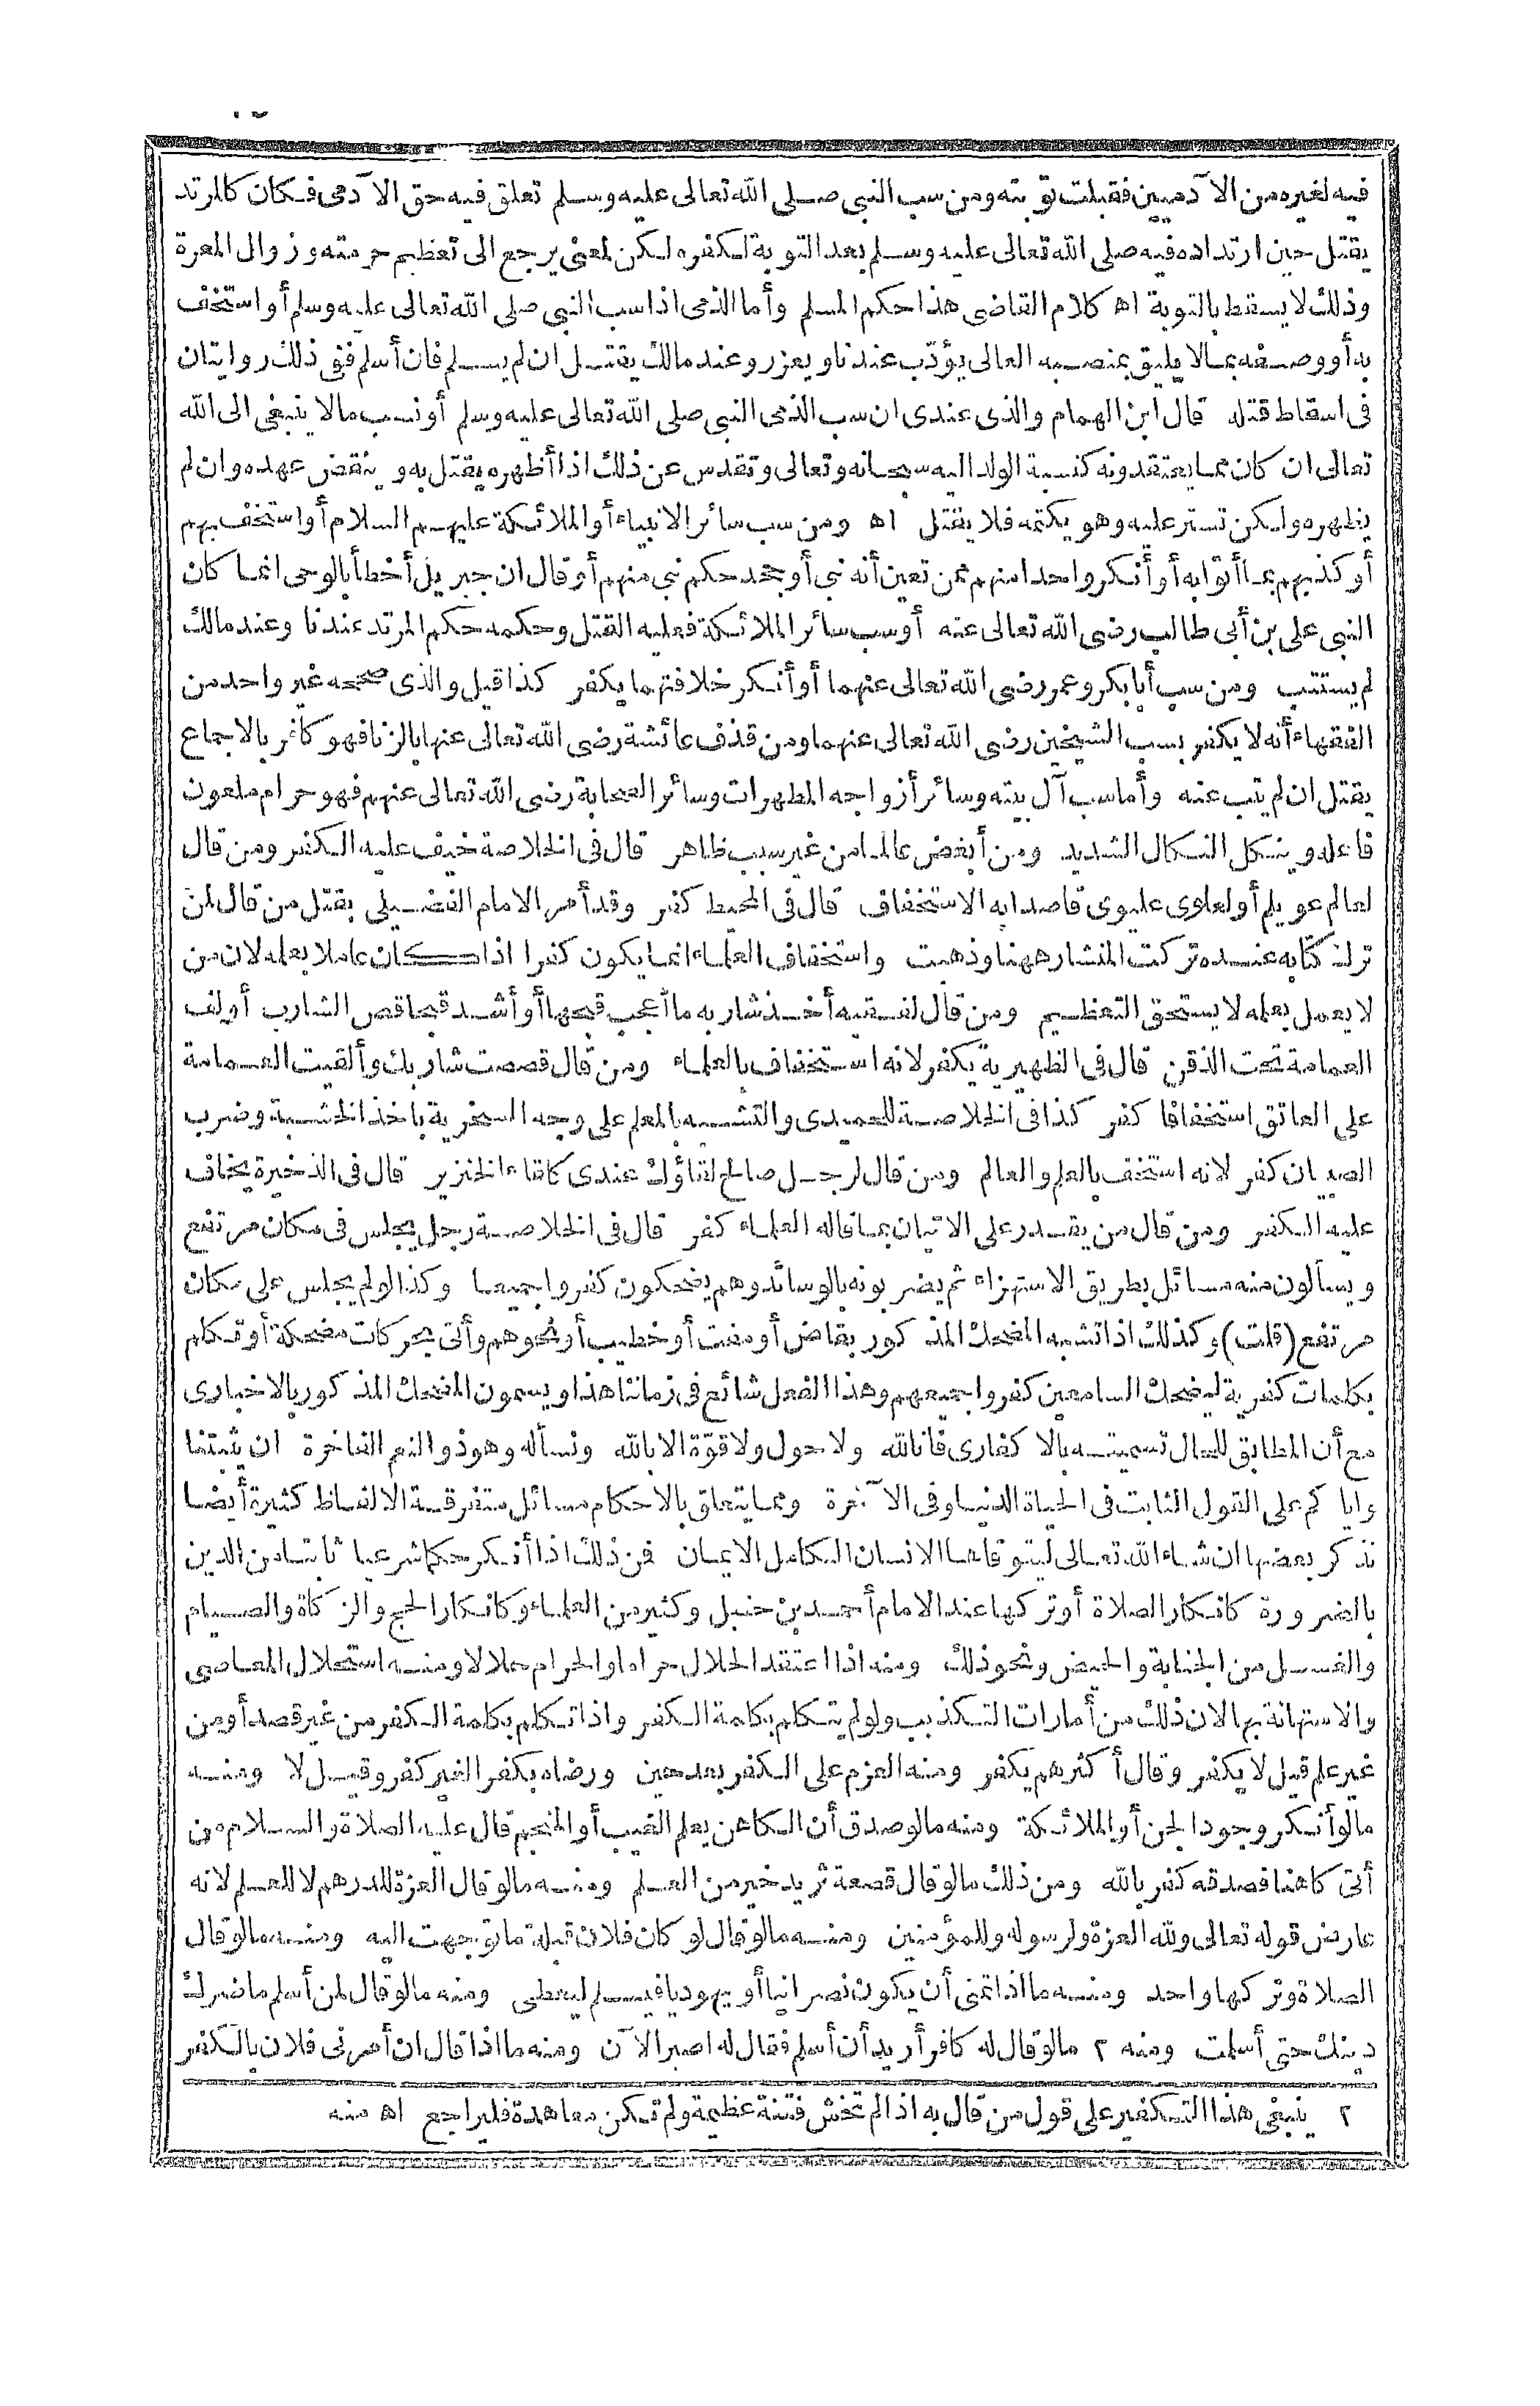 فيه لغيره من الآدميين فقبلت توبته ومن سب النبي صلى الله تعالى عليه وسلم تعلق فيه حق الآدمى فكان كالمرتد
يقتل حين ارتداده فيه صلى الله تعالى عليه وسلم بعد التوبة لكفره لكن لمعنى يرجع الى تعظيم حرمته وزوال المعرة
وذلك لا يسقط بالتوبة اه كلام القاضى هذا حكم المسلم وأما الذمى اذا سب النبي صلى الله تعالى عليه وسلم أو استخف
به أو وصفه بما لا يليق بمنصبه العالى يؤدّب عندنا ويعزر وعند مالك يقتل ان لم يسلم فان أسلم ففى ذلك روايتان
فى اسقاط قتله قال ابن الهمام والذى عندى ان سب الذمى النبي صلى الله تعالى عليه وسلم أو نسب ما لا ينبغى الى الله
تعالى ان كان مما يعتقدونه كنسبة الولد اليه سبحانه وتعالى وتقدس عن ذلك اذا أظهره يقتل به وينقض عهده وان لم
يظهره ولكن تستر عليه وهو يكتمه فلا يقتل اه ومن سب سائر الانبياء أو الملائكة عليهم السلام أو استخف بهم
أو كذبهم بما أتوا به أو أنكر واحدا منهم ممن تعين أنه نبي أو جحد حكم نبي منهم أو قال ان جبريل أخطأ بالوحى انما كان
النبي على بن أبى طالب رضى الله تعالى عنه أو سب سائر الملائكة فعليه القتل وحكمه حكم المرتد عندنا وعند مالك
لم يستتب ومن سب أبا بكر وعمر رضى الله تعالى عنهما أو أنكر خلافتهما يكفر كذا قيل والذى صححه غير واحد من
الفقهاء أنه لا يكفر بسب الشيخين رضى الله تعالى عنهما ومن قذف عائشة رضى الله تعالى عنها بالزنا فهو كافر بالاجماع
يقتل ان لم يتب عنه وأما سب آل بيته وسائر أزواجه المطهرات وسائر الصحابة رضى الله تعالى عنهم فهو حرام ملعون
فاعله وينكل النكال الشديد ومن أبغض عالما من غير سبب ظاهر قال فى الخلاصة خيف عليه الكفر ومن قال
لعالم عويلم أو لعلوى عليوى قاصدا به الاستخفاف قال فى المحيط كفر وقد أمر الامام الفضيلى بقتل من قال لمن
ترك كتابه عنده تركت المنشار ههنا وذهبت واستخفاف العلماء انما يكون كفرا اذا كان عاملا بعلمه لان من
لا يعمل بعلمه لا يستحق التعظيم ومن قال لفقيه أخذ شاربه ما أعجب قبحها أو أشد قبحا قص الشارب أو لف
العمامة تحت الذقن قال فى الظهيرية يكفر لانه استخفاف بالعلماء ومن قال قصصت شاربك وألقيت العمامة
على العاتق استخفافا كفر كذا فى الخلاصة للحميدى والتشبه بالمعلم على وجه السخرية باخذ الخشبة وضرب
الصبيان كفر لانه استخف بالعلم والعالم ومن قال لرجل صالح لقاؤك عندى كلقاء الخنزير قال فى الذخيرة يخاف
عليه الكفر ومن قال من يقدر على الاتيان بما قاله العلماء كفر قال فى الخلاصة رجل يجلس فى مكان مرتفع
ويسألون منه مسائل بطريق الاستهزاء ثم يضربونه بالوسائد وهم يضحكون كفروا جميعا وكذا لو لم يجلس على مكان
مرتفع (قلت) وكذلك اذا تشبه المضحك المذكور بقاض أو مفت أو خطيب أو نحوهم وأتى بحركات مضحكة أو تكلم
بكلمات كفرية ليضحك السامعين كفروا جميعهم وهذا الفعل شائع فى زماننا هذا ويسمون المضحك المذكور بالاخبارى
مع أن المطابق للحال تسميته بالا كفارى فانا لله ولا حول ولا قوّة الا بالله ونسأله وهو ذو النعم الفاخرة ان يثبتنا
وايا كم على القول الثابت فى الحياة الدنيا وفى الآخرة ومما يتعلق بالاحكام مسائل متفرقة الالفاظ كثيرة أيضا
نذكر بعضها ان شاء الله تعالى ليتوقاها الانسان الكامل الايمان فمن ذلك اذا أنكر حكما شرعيا ثابتا من الدين
بالضرورة كانكار الصلاة أو تركها عند الامام أحمد بن حنبل وكثير من العلماء وكانكار الحج والزكاة والصيام
والغسل من الجنابة والحيض ونحو ذلك ومنه اذا اعتقد الحلال حراما والحرام حلالا ومنه استحلال المعاصى
والاستهانة بها لان ذلك من أمارات التكذيب ولو لم يتكلم بكلمة الكفر واذا تكلم بكلمة الكفر من غير قصد أو من
غير علم قيل لا يكفر وقال أكثرهم يكفر ومنه العزم على الكفر بعد حين ورضاه بكفر الغير كفر وقيل لا ومنه
ما لو أنكر وجود الجن أو الملائكة ومنه ما لو صدق أن الكاهن يعلم الغيب أو المنجم قال عليه الصلاة والسلام من
أتى كاهنا فصدقه كفر بالله ومن ذلك ما لو قال قصعة ثريد خير من العلم ومنه ما لو قال العزة للدرهم لا للعلم لانه
عارض قوله تعالى ولله العزة ولرسوله وللمؤمنين ومنه ما لو قال لو كان فلان قبلة ما توجهت اليه ومنه ما لو قال
الصلاة وتركها واحد ومنه ما اذا تمنى أن يكون نصرانيا أو يهوديا فيسلم ليعطى ومنه ما لو قال لمن أسلم ما ضرك
دينك حتى أسلمت ومنه ٢ ما لو قال له كافر أريد أن أسلم فقال له اصبر الآن ومنه ما اذا قال ان أمرنى فلان بالكفر
٢ ينبغى هذا التكفير على قول من قال به اذا لم تخش فتنة عظيمة ولم تكن معاهدة فليراجع اه منه